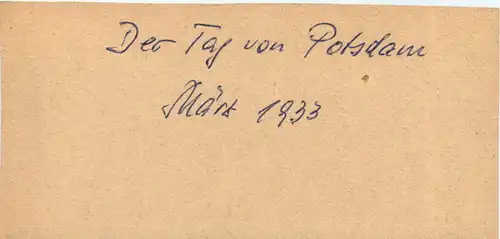 Der Tag von Potsdam
März 1933